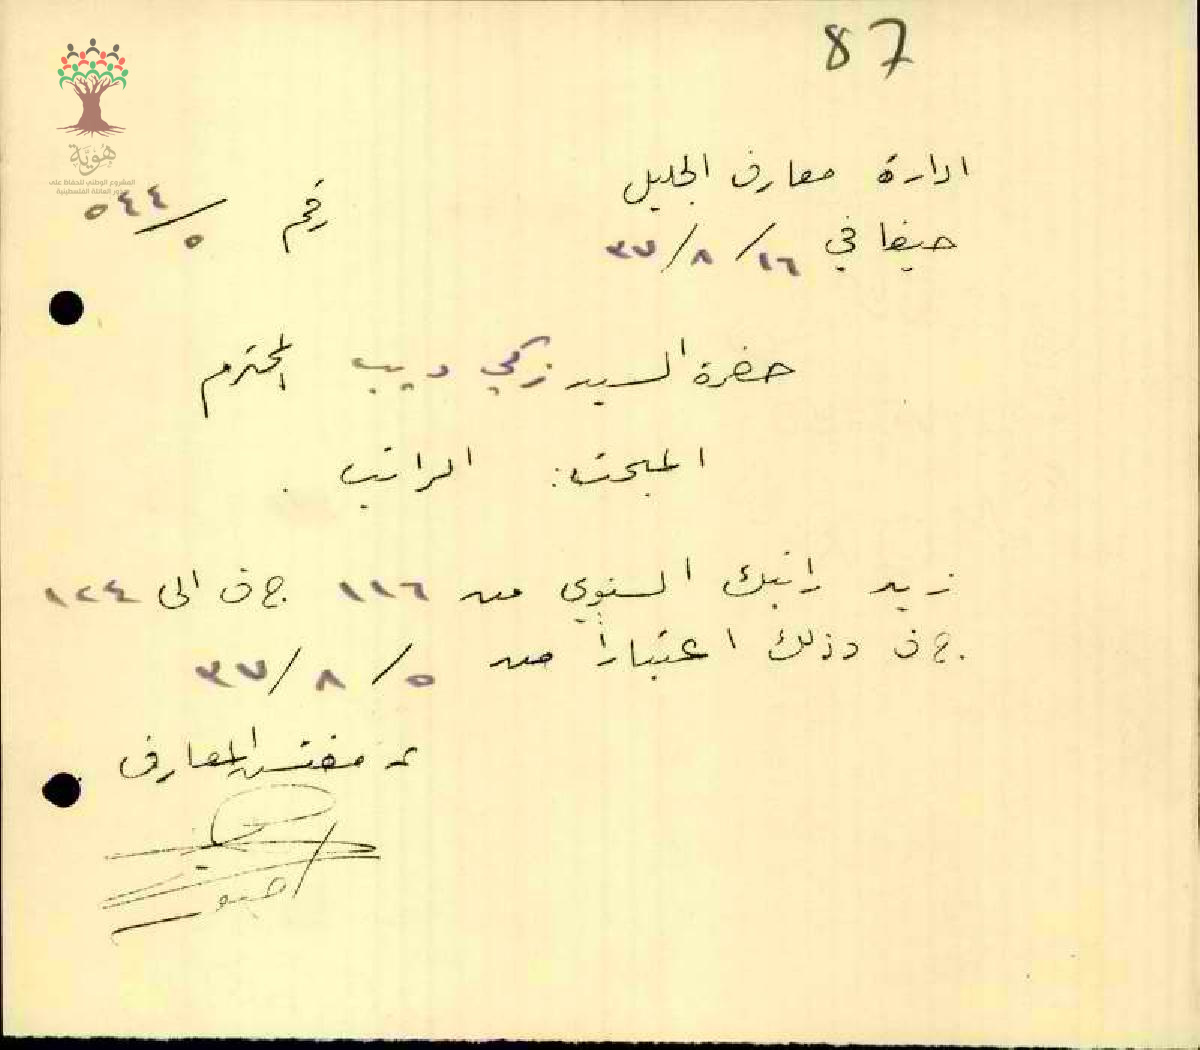 87
هوية
المشروع الوطني للحفاظ على
جذور العائلة الفلسطينية
ادارة معارف الجليل
رقم ٥٤٤/٥
حيفا في ١٦/٨/٣٧
حضرة السيد زكي ديب المحترم
المبحث: الراتب.
زيد راتبك السنوي من ١١٦ ج ف الى ١٢٤
ج ف وذلك اعتباراً من ٥/٨/٣٧
عن مفتش المعارف